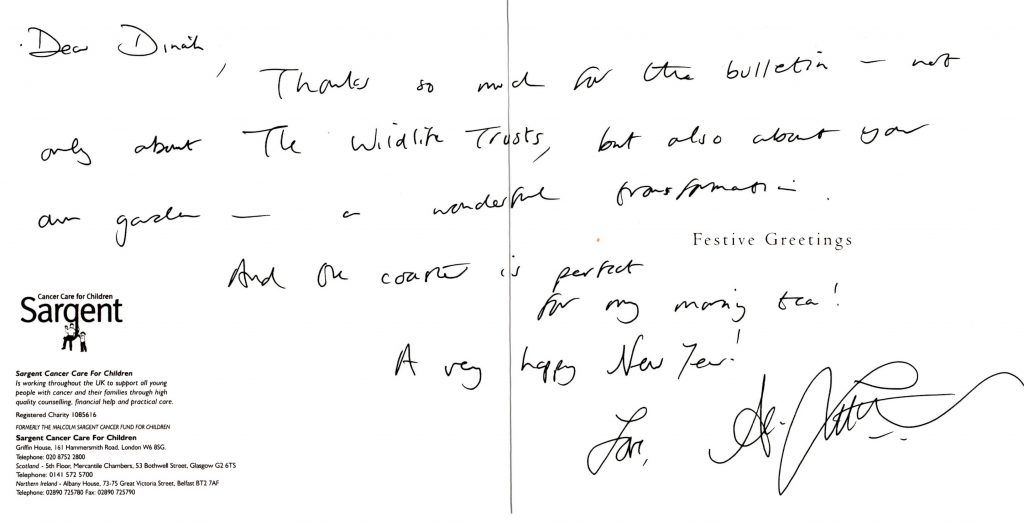 Dear Dinah,
Thanks so much for the bulletin – not
only about The Wildlife Trusts, but also about your
own garden – a wonderful transformation.
Festive Greetings
And the coaster is perfect
for my morning tea!
A very happy New Year!
Love,
Cancer Care for Children
Sargent
Sargent Cancer Care For Children
Is working throughout the UK to support all young
people with cancer and their families through high
quality counselling, financial help and practical care.
Registered Charity 1085616
FORMERLY THE MALCOLM SARGENT CANCER FUND FOR CHILDREN
Sargent Cancer Care For Children
Griffin House, 161 Hammersmith Road, London W6 8SG.
Telephone: 020 8752 2800
Scotland - 5th Floor, Mercantile Chambers, 53 Bothwell Street, Glasgow G2 6TS
Telephone: 0141 572 5700
Northern Ireland - Albany House, 73-75 Great Victoria Street, Belfast BT2 7AF
Telephone: 02890 725780 Fax: 02890 725790